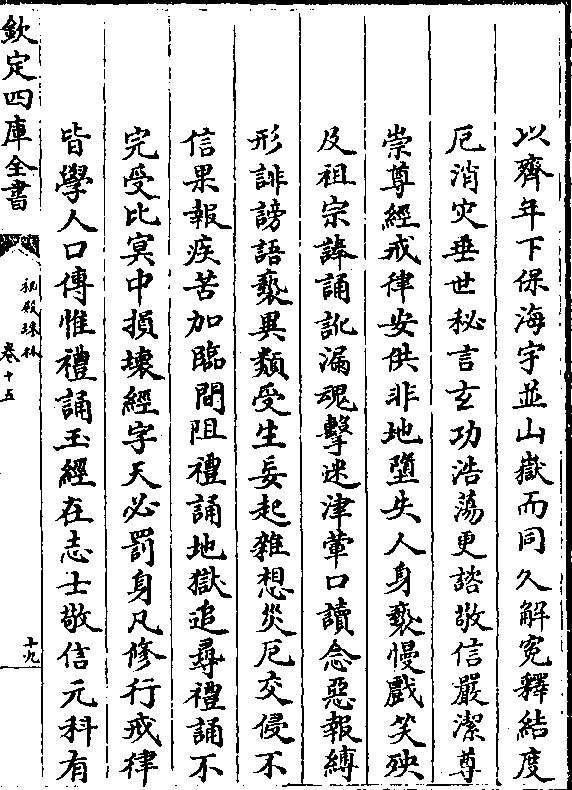 以齊年下保海宇並山嶽而同久解寃釋結度
厄消灾垂世秘言玄功浩蕩更諮敬信嚴潔尊
崇尊經戒律安供非地墮失人身褻慢戲笑殃
及祖宗諱誦訛漏魂擊迷津葷口讀念惡報縛
形誹謗語褻異類受生妄起雜想災厄交侵不
信果報疾苦加臨間阻禮誦地獄追尋禮誦不
完受比㝠中損壞經字天必罰身凡修行戒律
皆學人口傳惟禮誦玉經在志士敬信元科有
欽定四庫全書
秘殿珠林
卷十五
十九